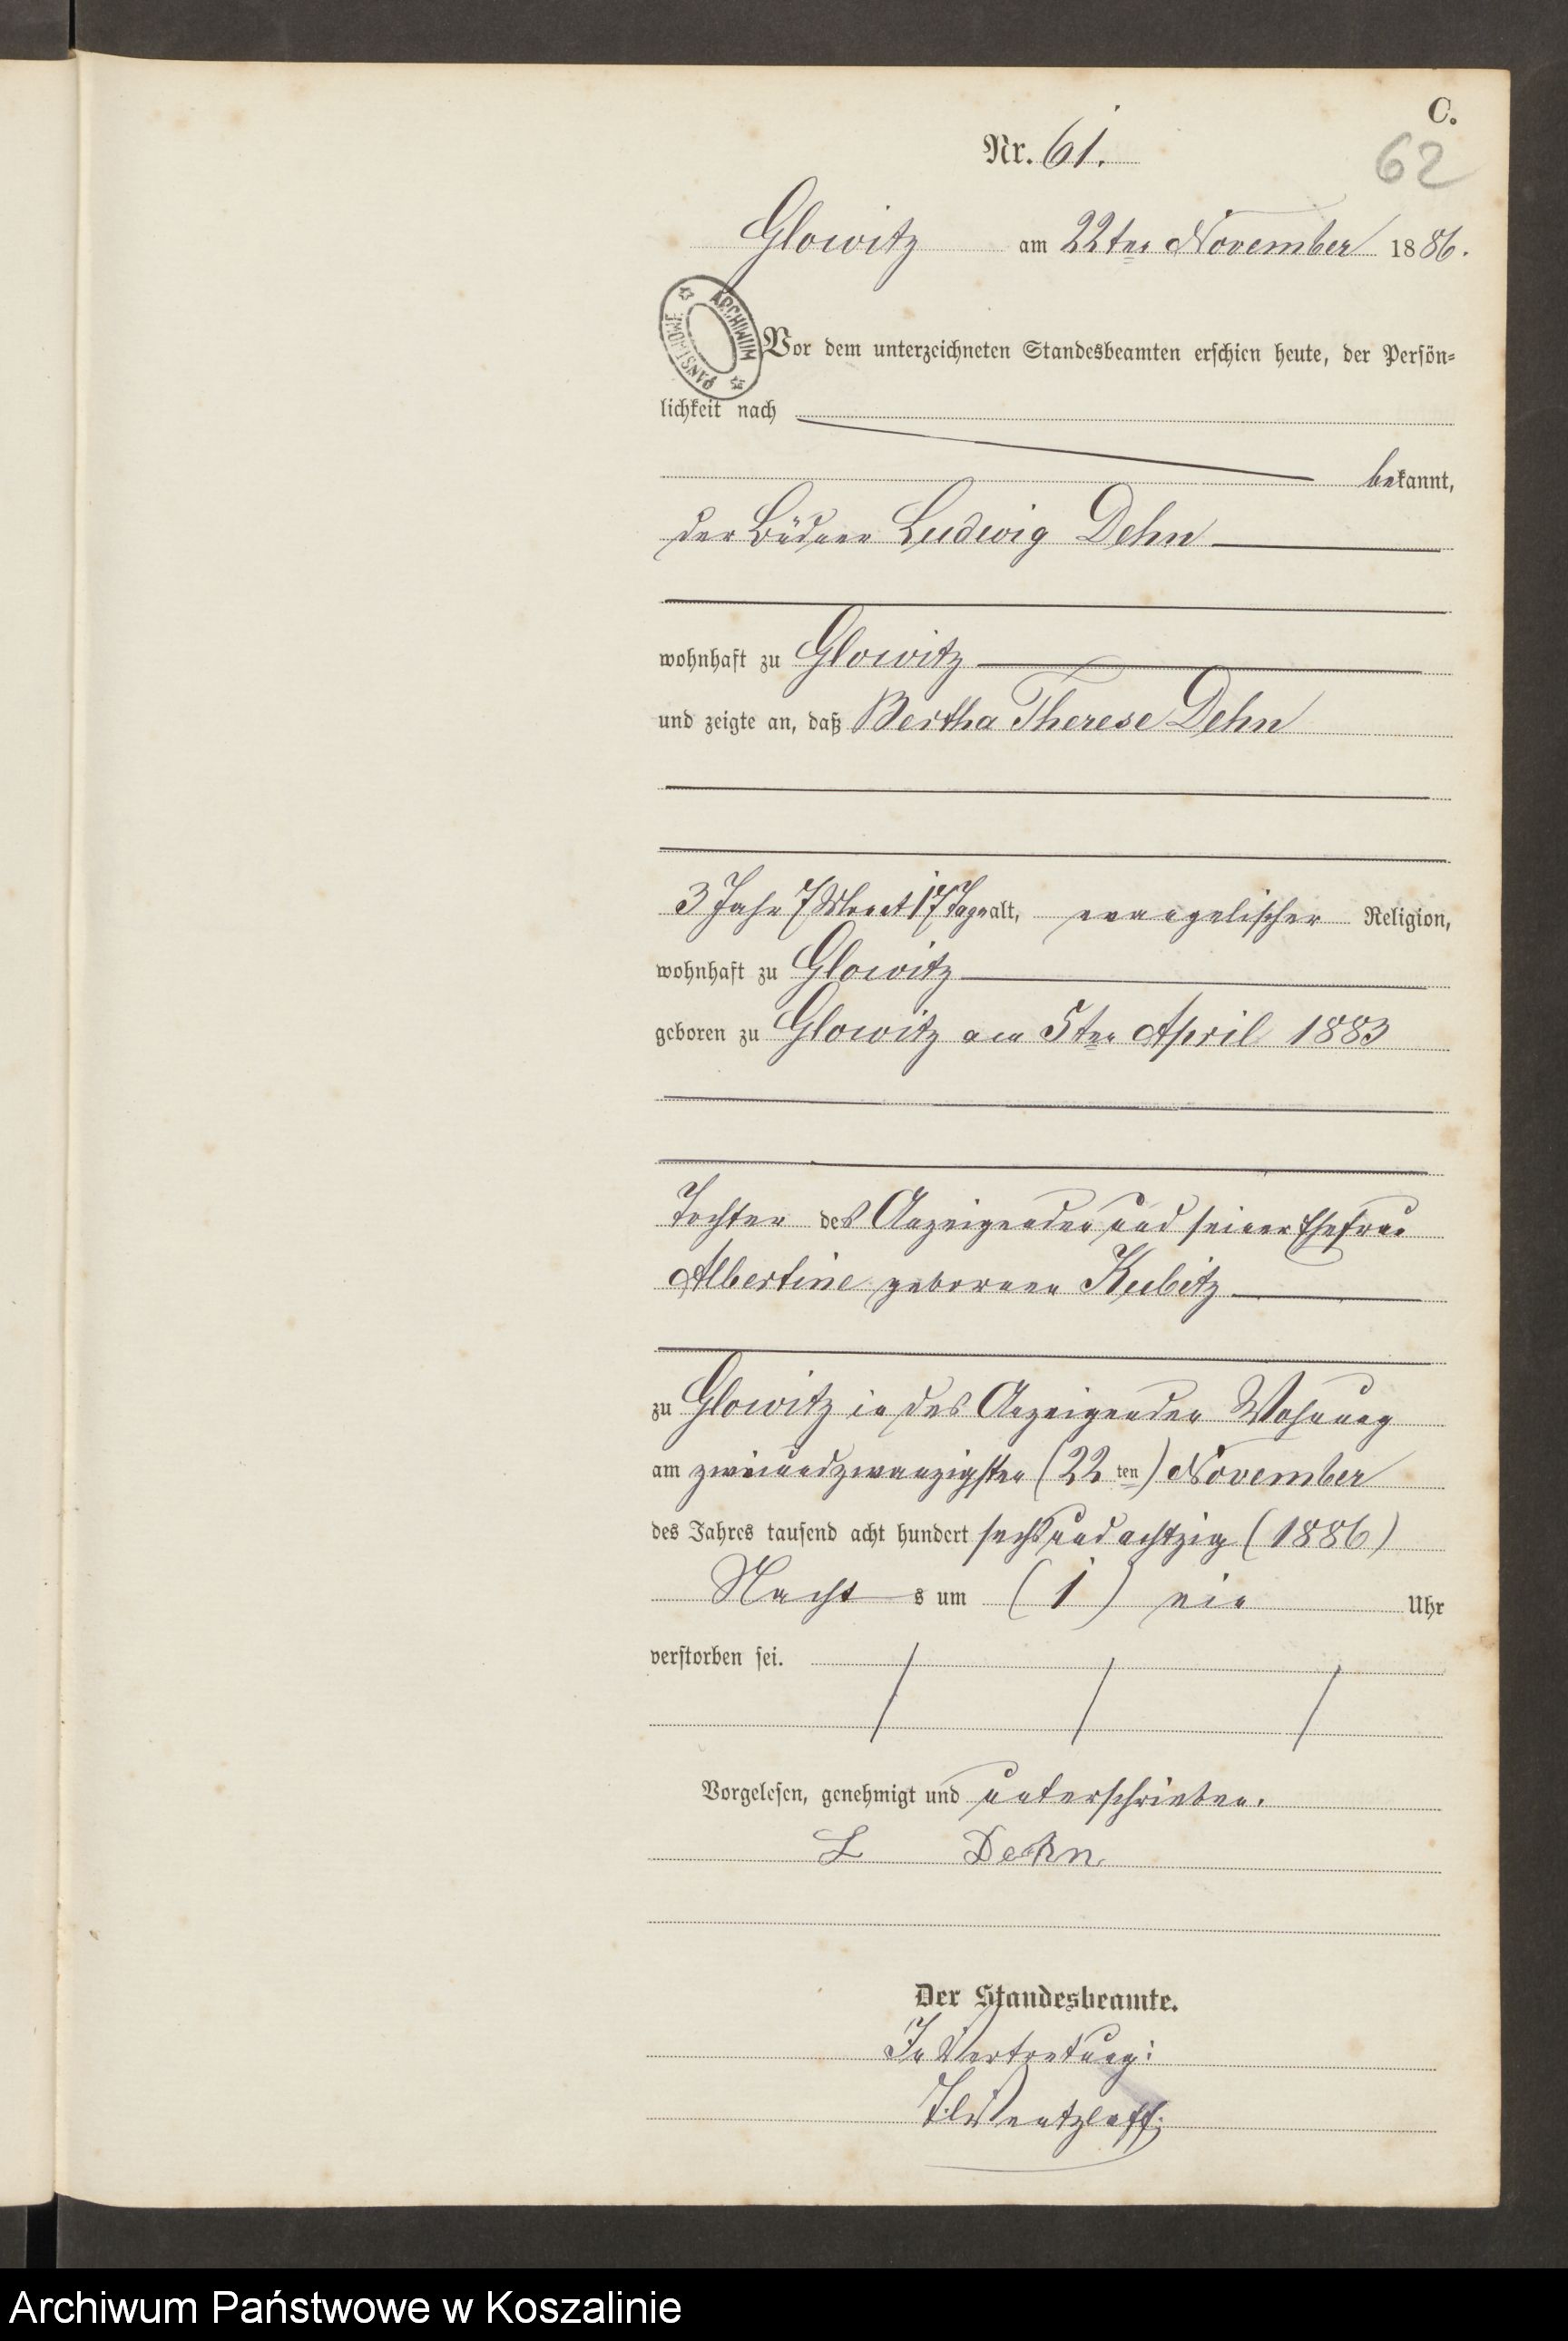 C.
Nr. 61.
62
Glowitz am 22ten November 1886.
ARCHIWUM PAŃSTWOWE
Vor dem unterzeichneten Standesbeamten erschien heute, der Persön-
lichkeit nach
bekannt,
der Büdner Ludwig Dehn
wohnhaft zu Glowitz
und zeigte an, daß Bertha Therese Dehn
3 Jahr 7 Monat 17 Tage alt, evangelischer Religion,
wohnhaft zu Glowitz
geboren zu Glowitz am 5ten April 1883
Tochter des Anzeigenden und seiner Ehefrau
Albertine geborenen Kubitz
zu Glowitz in des Anzeigenden Wohnung
am zweiundzwanzigsten (22ten) November
des Jahres tausend acht hundert sechsundachtzig (1886)
Nachts um (1) ein Uhr
verstorben sei.
Vorgelesen, genehmigt und unterschrieben.
L Dehn
Der Standesbeamte.
In Vertretung:
Wentzlaff.
Archiwum Państwowe w Koszalinie